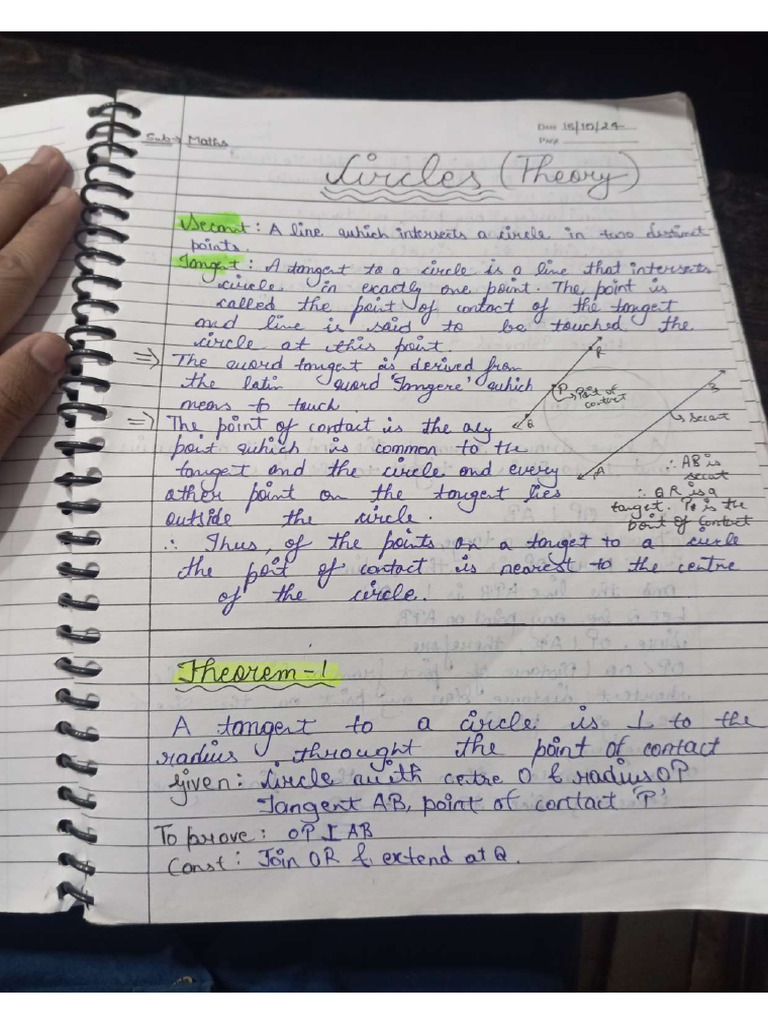 Sub → Maths
Date 15/10/24
Page
Circles (Theory)
Secant : A line which intersects a circle in two distinct
points.
Tangent : A tangent to a circle is a line that intersects
circle in exactly one point. The point is
called the point of contact of the tangent
and line is said to be touched the
circle at this point.
⇒ The word tangent is derived from
the latin word 'Tangere' which
means to touch.
⇒ The point of contact is the
point which is common to the
tangent and the circle and every
other point on the tangent lies
outside the circle.
R
P
Point of
contact
Q
B
Secant
A
∴ AB is
secant
∴ QR is a
tangent. is the
point of contact
∴ Thus, of the points on a tanget to a circle
the point of contact is nearest to the centre
of the circle.
Theorem - 1
A tangent to a circle is ⊥ to the
radius throught the point of contact
Given : Circle with centre O & radius OP
Tangent AB, point of contact 'P'
To prove : OP ⊥ AB
Const : Join OR & extend at Q.